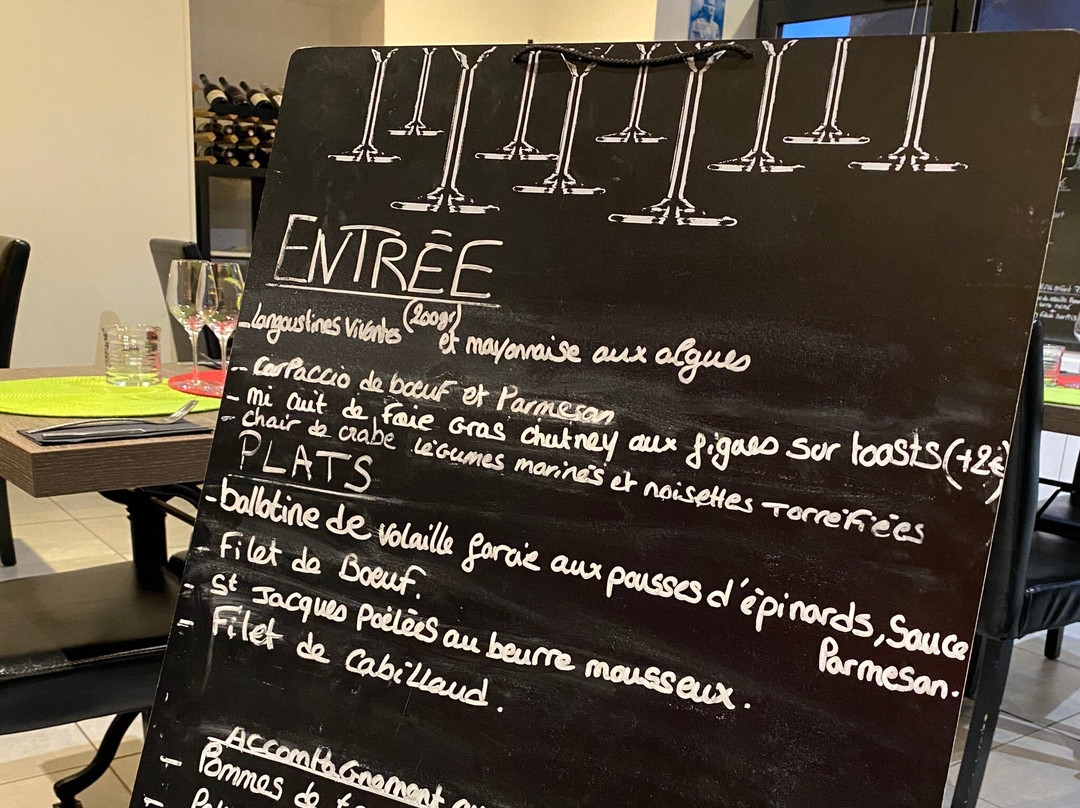 ENTRÉE
- langoustines vivantes (200gr) et mayonnaise aux algues
- Carpaccio de boeuf et Parmesan
- mi cuit de foie Gras chutney aux figues sur toasts (+2€)
- chair de crabe légumes marinés et noisettes Torréfiées
PLATS
- ballotine de volaille farcie aux pousses d'épinards, Sauce
Parmesan.
- Filet de Boeuf.
- St Jacques Poêlées au beurre mousseux.
- Filet de Cabillaud.
Accompagnement au
- Pommes de
-